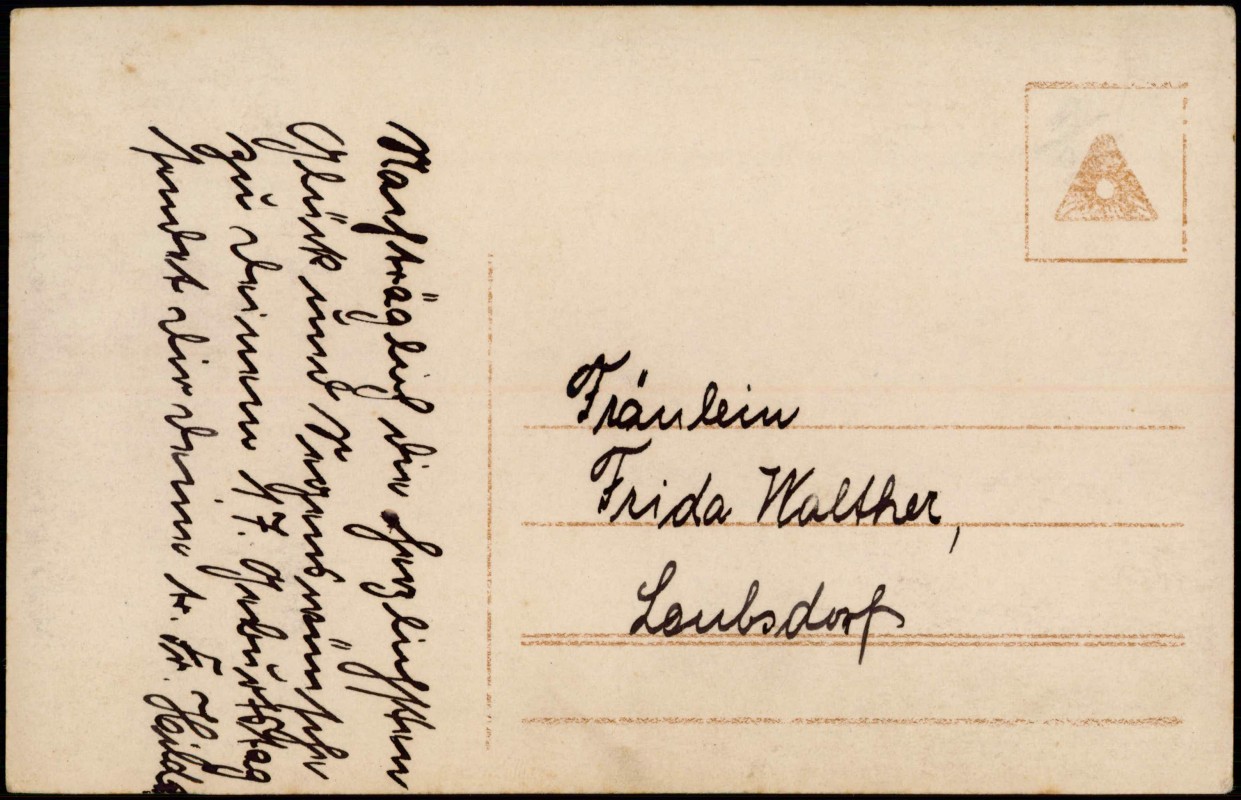 Nachträglich die herzlichsten
Glück und Segenswünsche
zu deinem 17. Geburtstag
sendet dir deine tr. Fr. Hilde
Fräulein
Frida Walther,
Laubsdorf